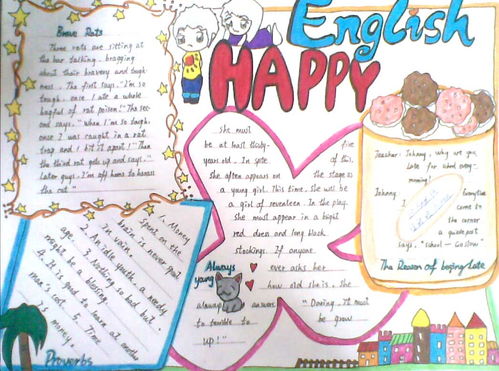 English
HAPPY
Brave Rats
Three rats are sitting at
the bar talking, bragging
about their bravery and tough-
ness. The first says, "I'm so
tough, once I ate a whole
bagful of rat poison!" The sec-
ond says, "When I'm so tough,
once I was caught in a rat
trap and I bit it apart!" Then
the third rat gets up and says, "
Later guys, I'm off home to harass
the cat."
she must
be at least thirty-five
years-old. In spite of this,
she often appears on the stage as
a young girl. This time, she will be
a girl of seventeen. In the play,
she must appear in a bright
red dress and long black
stockings. If anyone
ever asks her
how old she is, she
always answer
"Daring, It must
be terrible to be grow
up!"
Always
young
Teacher: Johnny, why are you
late for school every
morning?
Johnny
Everytime
I come to
the corner
a guidepost
says, "school — Go Slow".
The Reason of being Late
1. Money spent on the
brain is never spent
in vain.
2. An idle youth, a needy
age. 3. Nothing so bad but
might be a blessing.
4. It is good to learn at another
man's cost. 5. Time
is money.
Proverbs